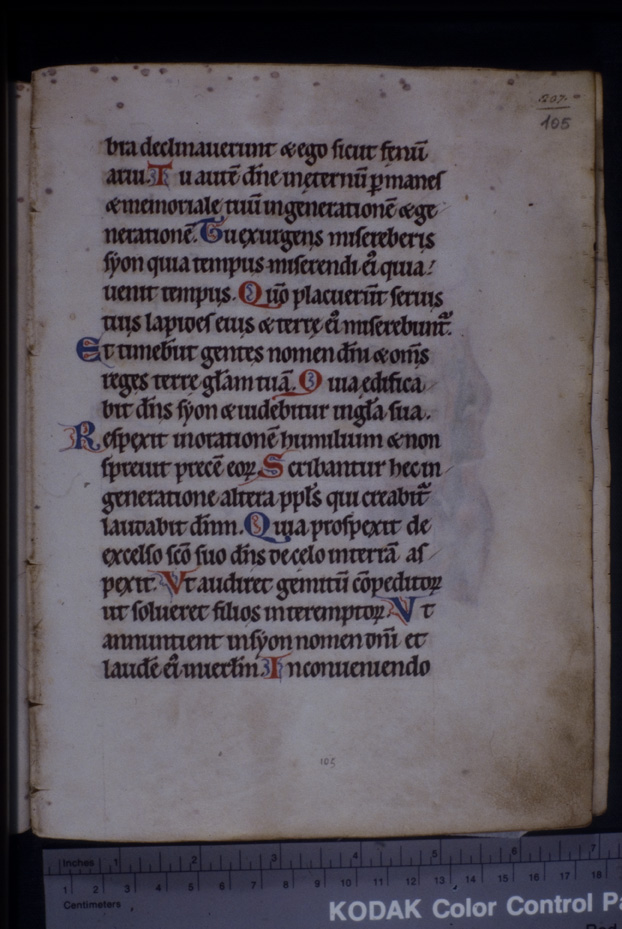 .207.
105
bra declinauerunt & ego sicut fenū
aruı. Tu autē dn̄e in eternū ꝑmanes
& memoriale tuū in generationē & ge
nerationē. Tu exurgens misereberis
syon quia tempus miserendi ei᷒ quia
uenit tempus. Qm̄o placuerūt seruis
tuis lapides eius & terrę ei᷒ miserebunt᷑.
Et timebūt gentes nomen dn̄i & om̄s
reges terre gl̄am tuā. Quia edifica
bit dn̄s syon & uidebitur in gl̄a sua.
Respexit in orationē humilium & non
spreuit precē eoꝝ. Scribantur hec in
generatione altera ppl̄s qui creabit᷑
laudabit dn̄m. Quia prospexit de
excelso sc̄o suo dn̄s de celo in terrā as
pexit. Vt audiret gemitū cōpeditoꝝ
ut solueret filios interemptoꝝ. Vt
annuntient in syon nomen dn̄i et
laudē ei᷒ in ierl̄m. In conueniendo
105
Inches 1 2 3 4 5 6 7
1 2 3 4 5 6 7 8 9 10 11 12 13 14 15 16 17 18
Centimeters
KODAK Color Control Pa